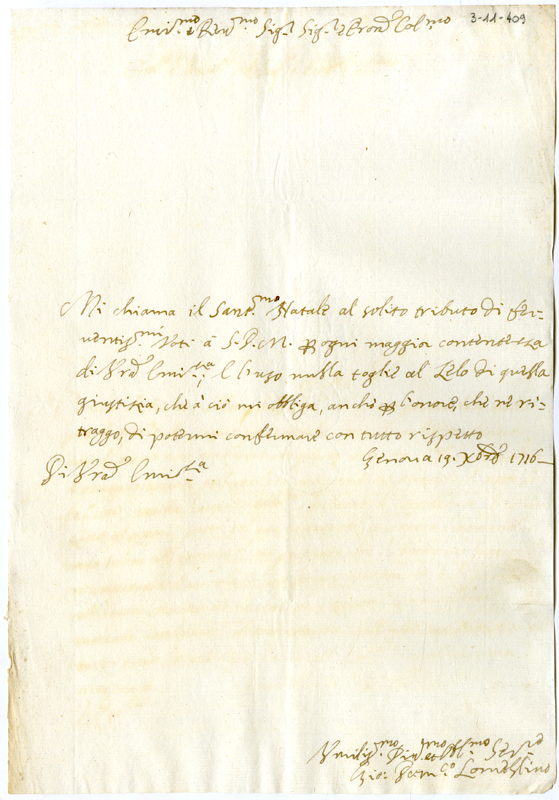 3-11-409
Emi.mo e Reu.mo Sig.r Sig.r e Pron Col.mo
Mi chiama il Sant.mo Natale al solito tributo di fer-
uentiss.mi Voti à S. D. M. per ogni maggior contentezza
di V.ra Emi.za; l'Vso nulla toglie al Zelo di quella
giustitia, che à ciò mi obbliga, anche per l'onore, che ne ri-
traggo, di potermi confermare con tutto rispetto
Di V.ra Emi.za
Genoua 19. Xbre 1716
Vmiliss.mo Diu.mo et Obl.mo Ser.re
Gio: Lomellino